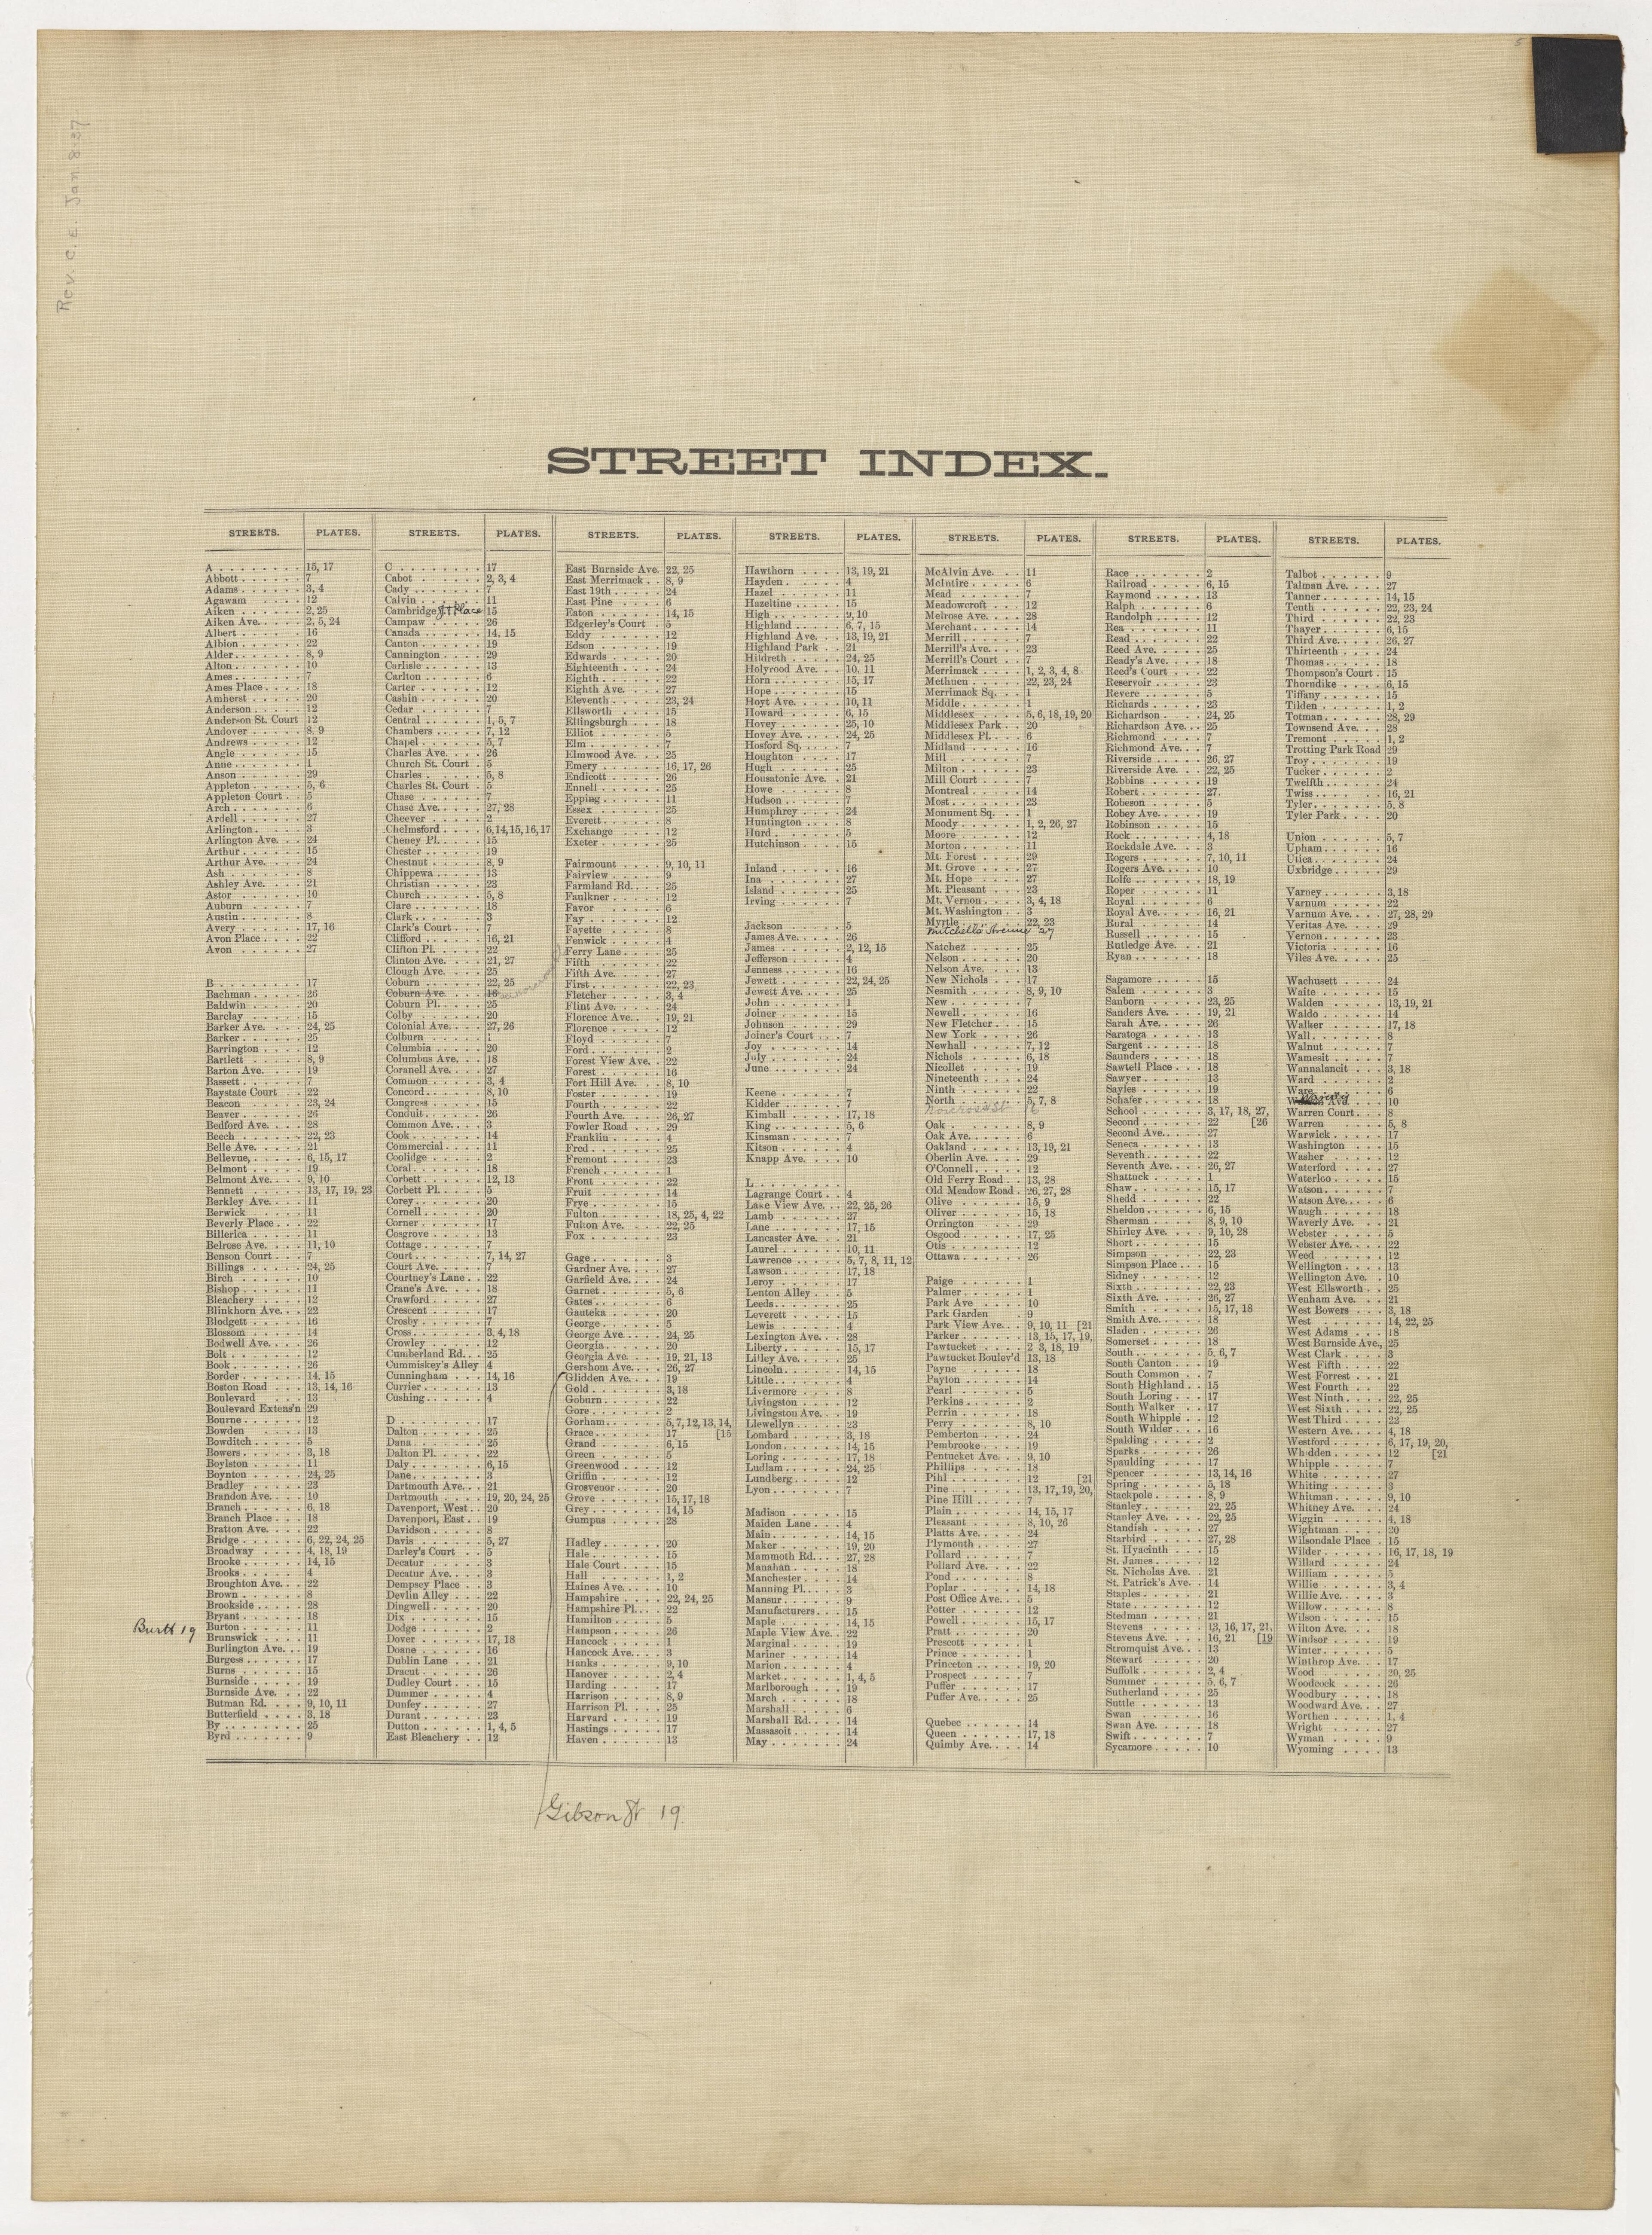 Rev. C. E. Jan. 8-37
5
STREET INDEX.
STREETS. PLATES.
A 15, 17
Abbott 7
Adams 3, 4
Agawam 12
Aiken 2, 25
Aiken Ave. 2, 5, 24
Albert 16
Albion 22
Alder 8, 9
Alton 10
Ames 7
Ames Place 18
Amherst 20
Anderson 12
Anderson St. Court 12
Andover 8, 9
Andrews 12
Angle 15
Anne 1
Anson 29
Appleton 5, 6
Appleton Court 5
Arch 6
Ardell 27
Arlington 3
Arlington Ave. 24
Arthur 15
Arthur Ave. 24
Ash 8
Ashley Ave. 21
Astor 10
Auburn 7
Austin 8
Avery 17, 16
Avon Place 22
Avon 27
B 17
Bachman 26
Baldwin 20
Barclay 15
Barker Ave. 24, 25
Barker 25
Barrington 12
Bartlett 8, 9
Barton Ave. 19
Bassett 7
Baystate Court 22
Beacon 23, 24
Beaver 26
Bedford Ave. 28
Beech 22, 23
Belle Ave. 21
Bellevue, 6, 15, 17
Belmont 19
Belmont Ave. 9, 10
Bennett 13, 17, 19, 23
Berkley Ave. 11
Berwick 11
Beverly Place 22
Billerica 11
Belrose Ave. 11, 10
Benson Court 7
Billings 24, 25
Birch 10
Bishop 11
Bleachery 12
Blinkhorn Ave. 22
Blodgett 16
Blossom 14
Bodwell Ave. 26
Bolt 12
Book 26
Border 14, 15
Boston Road 13, 14, 16
Boulevard 13
Boulevard Extens'n 29
Bourne 12
Bowden 13
Bowditch 5
Bowers 3, 18
Boylston 11
Boynton 24, 25
Bradley 23
Brandon Ave. 10
Branch 6, 18
Branch Place 18
Bratton Ave. 22
Bridge 6, 22, 24, 25
Broadway 4, 18, 19
Brooke 14, 15
Brooks 4
Broughton Ave. 22
Brown 8
Brookside 28
Bryant 18
Burtt 19
Burton 11
Brunswick 11
Burlington Ave. 19
Burgess 17
Burns 15
Burnside 19
Burnside Ave. 22
Buttman Rd. 9, 10, 11
Butterfield 3, 18
By 25
Byrd 9
STREETS. PLATES.
C 17
Cabot 2, 3, 4
Cady 7
Calvin 11
Cambridge St Place 15
Campaw 26
Canada 14, 15
Canton 19
Cannington 29
Carlisle 13
Carlton 6
Carter 12
Cashin 20
Cedar 7
Central 1, 5, 7
Chambers 7, 12
Chapel 5, 7
Charles Ave. 26
Church St. Court 5
Charles 5, 8
Charles St. Court 5
Chase 7
Chase Ave. 27, 28
Cheever 2
Chelmsford 6,14,15,16,17
Cheney Pl. 15
Chester 19
Chestnut 8, 9
Chippewa 13
Christian 23
Church 5, 8
Clare 18
Clark 3
Clark's Court 7
Clifford 16, 21
Clifton 22
Clinton Ave. 21, 27
Clough Ave. 25
Coburn 22, 25
Coburn Ave. 18
Coburn Pl. 25
Colby 20
Colonial Ave. 27, 26
Colburn
Columbia 20
Columbus Ave. 18
Coranell Ave. 27
Common 3, 4
Concord 8, 10
Congress 15
Conduit 26
Common Ave. 3
Cook 14
Commercial 11
Coolidge 2
Coral 18
Corbett 12, 13
Corbett Pl. 5
Corey 20
Cornell 20
Corner 17
Cosgrove 13
Cottage 7
Court 7, 14, 27
Court Ave. 7
Courtney's Lane 22
Crane's Ave. 18
Crawford 27
Crescent 17
Crosby 7
Cross 3, 4, 18
Crowley 12
Cumberland Rd. 25
Cummiskey's Alley 4
Cunningham 14, 16
Currier 13
Cushing 4
D 17
Dalton 25
Dana 25
Dalton Pl. 22
Daly 6, 15
Dane 3
Dartmouth Ave. 21
Dartmouth 19, 20, 24, 25
Davenport, West 20
Davenport, East 19
Davidson 8
Davis 5, 27
Darley's Court 5
Decatur 3
Decatur Ave. 3
Dempsey Place 3
Devlin Alley 22
Dingwell 20
Dix 15
Dodge 2
Dover 17, 18
Doane 16
Dublin Lane 21
Dracut 26
Dudley Court 15
Dummer 4
Dunfey 27
Durant 23
Dutton 1, 4, 5
East Bleachery 12
STREETS. PLATES.
East Burnside Ave. 22, 25
East Merrimack 8, 9
East 19th 24
East Pine 6
Eaton 14, 15
Edgerley's Court 5
Eddy 12
Edson 19
Edwards 20
Eighteenth 24
Eighth 22
Eighth Ave. 27
Eleventh 23, 24
Ellsworth 15
Ellingsburgh 18
Elliot 5
Elm 7
Elmwood Ave. 25
Emery 16, 17, 26
Endicott 26
Ennell 25
Epping 11
Essex 25
Everett 8
Exchange 12
Exeter 25
Fairmount 9, 10, 11
Fairview 9
Farmland Rd. 25
Faulkner 12
Favor 6
Fay 12
Fayette 8
Fenwick 4
Ferry Lane 25
Fifth 22
Fifth Ave. 27
First 22, 23
Fletcher 3, 4
Flint Ave. 24
Florence Ave. 19, 21
Florence 12
Floyd 7
Ford 2
Forest View Ave. 22
Forest 16
Fort Hill Ave. 8, 10
Foster 19
Fourth 22
Fourth Ave. 26, 27
Fowler Road 29
Franklin 4
Fred 25
Fremont 23
French 1
Front 22
Fruit 14
Frye 15
Fulton 18, 25, 4, 22
Fulton Ave. 22, 25
Fox 23
Gage 3
Gardner Ave. 27
Garfield Ave. 24
Garnet 5, 6
Gates 6
Gauteka 20
George 5
George Ave. 24, 25
Georgia 20
Georgia Ave. 19, 21, 13
Gershom Ave. 26, 27
Glidden Ave. 19
Gold 3, 18
Goburn 22
Gore 2
Gorham 5,7,12,13,14,
Grace 17 [15
Grand 6, 15
Green 5
Greenwood 12
Griffin 12
Grosvenor 20
Grove 15, 17, 18
Grey 14, 15
Gumpus 28
Hadley 20
Hale 15
Hale Court 15
Hall 1, 2
Haines Ave. 10
Hampshire 22, 24, 25
Hampshire Pl. 22
Hamilton 5
Hampson 26
Hancock 1
Hancock Ave. 3
Hanks 9, 10
Hanover 2, 4
Harding 17
Harrison 8, 9
Harrison Pl. 25
Harvard 19
Hastings 17
Haven 13
Gibson St 19.
STREETS. PLATES.
Hawthorn 13, 19, 21
Hayden 4
Hazel 11
Hazeltine 15
High 9, 10
Highland 6, 7, 15
Highland Ave. 13, 19, 21
Highland Park 21
Hildreth 24, 25
Holyrood Ave. 10, 11
Horn 15, 17
Hope 15
Hoyt Ave. 10, 11
Howard 6, 15
Hovey 25, 10
Hovey Ave. 24, 25
Hosford Sq. 7
Houghton 17
Hugh 25
Housatonic Ave. 21
Howe 8
Hudson 7
Humphrey 24
Huntington 8
Hurd 5
Hutchinson 15
Inland 16
Ina 27
Island 25
Irving 7
Jackson 5
James Ave. 26
James 2, 12, 15
Jefferson 4
Jenness 16
Jewett 22, 24, 25
Jewett Ave. 25
John 1
Joiner 15
Johnson 29
Joiner's Court 7
Joy 14
July 24
June 24
Keene 7
Kidder 7
Kimball 17, 18
King 5, 6
Kinsman 7
Kitson 4
Knapp Ave. 10
L
Lagrange Court 4
Lake View Ave. 22, 25, 26
Lamb 27
Lane 17, 15
Lancaster Ave. 21
Laurel 10, 11
Lawrence 5, 7, 8, 11, 12
Lawson 17, 18
Leroy 17
Lenton Alley 5
Leeds 25
Leverett 15
Lewis 4
Lexington Ave. 28
Liberty 15, 17
Lilley Ave. 25
Lincoln 14, 15
Little 4
Livermore 8
Livingston 12
Livingston Ave. 19
Llewellyn 23
Lombard 3, 18
London 14, 15
Loring 17, 18
Ludlam 24, 25
Lundberg 12
Lyon 7
Madison 15
Maiden Lane 4
Main 14, 15
Maker 19, 20
Mammoth Rd. 27, 28
Manahan 18
Manchester 14
Manning Pl. 3
Mansur 9
Manufacturers 15
Maple 14, 15
Maple View Ave. 22
Marginal 19
Mariner 14
Marion 4
Market 1, 4, 5
Marlborough 19
March 18
Marshall 6
Marshall Rd. 14
Massasoit 14
May 24
STREETS. PLATES.
McAlvin Ave. 11
McIntire 6
Mead 7
Meadowcroft 12
Melrose Ave. 28
Merchant 14
Merrill 7
Merrill's Ave. 23
Merrill's Court 7
Merrimack 1, 2, 3, 4, 8
Methuen 22, 23, 24
Merrimack Sq. 1
Middle 1
Middlesex 5, 6, 18, 19, 20
Middlesex Park 20
Middlesex Pl. 6
Midland 16
Mill 7
Milton 23
Mill Court 7
Montreal 14
Most 23
Monument Sq. 1
Moody 1, 2, 26, 27
Moore 12
Morton 11
Mt. Forest 29
Mt. Grove 27
Mt. Hope 27
Mt. Pleasant 23
Mt. Vernon 3, 4, 18
Mt. Washington 3
Myrtle 22, 23
Mitchells Avenue 27
Natchez 25
Nelson 20
Nelson Ave. 13
New Nichols 17
Nesmith 8, 9, 10
New 7
Newell 16
New Fletcher 15
New York 26
Newhall 7, 12
Nichols 6, 18
Nicollet 19
Nineteenth 24
Ninth 22
North 5, 7, 8
Norcross St 16
Oak 8, 9
Oak Ave. 6
Oakland 13, 19, 21
Oberlin Ave. 29
O'Connell 12
Old Ferry Road 13, 28
Old Meadow Road 26, 27, 28
Olive 15, 9
Oliver 15, 18
Orrington 29
Osgood 17, 25
Otis 12
Ottawa 26
Paige 1
Palmer 1
Park Ave 10
Park Garden 9
Park View Ave. 9, 10, 11 [21
Parker 13, 15, 17, 19,
Pawtucket 2 3, 18, 19
Pawtucket Boulev'd 13, 18
Payne 18
Payton 14
Pearl 5
Perkins 2
Perrin 18
Perry 8, 10
Pemberton 24
Pembrooke 19
Pentucket Ave. 9, 10
Phillips 18
Pihl 12 [21
Pine 13, 17, 19, 20,
Pine Hill 7
Plain 14, 15, 17
Pleasant 8, 10, 26
Platts Ave. 24
Plymouth 27
Pollard 7
Pollard Ave. 22
Pond 8
Poplar 14, 18
Post Office Ave. 5
Potter 12
Powell 15, 17
Pratt 20
Prescott 1
Prince 1
Princeton 19, 20
Prospect 7
Puffer 17
Puffer Ave. 25
Quebec 14
Queen 17, 18
Quimby Ave. 14
STREETS. PLATES.
Race 2
Railroad 6, 15
Raymond 13
Ralph 6
Randolph 12
Rea 11
Read 22
Reed Ave. 25
Ready's Ave. 18
Reed's Court 22
Reservoir 23
Revere 5
Richards 23
Richardson 24, 25
Richardson Ave. 25
Richmond 7
Richmond Ave. 7
Riverside 26, 27
Riverside Ave. 22, 25
Robbins 19
Robert 27.
Robeson 5
Robey Ave. 19
Robinson 15
Rock 4, 18
Rockdale Ave. 3
Rogers 7, 10, 11
Rogers Ave. 10
Rolfe 18, 19
Roper 11
Royal 6
Royal Ave. 16, 21
Rural 14
Russell 15
Rutledge Ave. 21
Ryan 18
Sagamore 15
Salem 3
Sanborn 23, 25
Sanders Ave. 19, 21
Sarah Ave. 26
Saratoga 13
Sargent 18
Saunders 18
Sawtell Place 18
Sawyer 13
Sayles 19
Schafer 18
School 3, 17, 18, 27,
Second 22 [26
Second Ave. 27
Seneca 13
Seventh 22
Seventh Ave. 26, 27
Shattuck 1
Shaw 15, 17
Shedd 22
Sheldon 6, 15
Sherman 8, 9, 10
Shirley Ave. 9, 10, 28
Short 15
Simpson 22, 23
Simpson Place 15
Sidney 12
Sixth 22, 23
Sixth Ave. 26, 27
Smith 15, 17, 18
Smith Ave. 18
Sladen 26
Somerset 18
South 5, 6, 7
South Canton 19
South Common 7
South Highland 15
South Loring 17
South Walker 17
South Whipple 12
South Wilder 16
Spalding 2
Sparks 26
Spaulding 17
Spencer 13, 14, 16
Spring 5, 18
Stackpole 8, 9
Stanley 22, 25
Stanley Ave. 22, 25
Standish 27
Starbird 27, 28
St. Hyacinth 15
St. James 12
St. Nicholas Ave. 21
St. Patrick's Ave. 14
Staples 21
State 12
Stedman 21
Stevens 13, 16, 17, 21,
Stevens Ave. 16, 21 [19
Stromquist Ave. 13
Stewart 20
Suffolk 2, 4
Summer 5, 6, 7
Sutherland 25
Suttle 13
Swan 16
Swan Ave. 18
Swift 7
Sycamore 10
STREETS. PLATES.
Talbot 9
Talman Ave. 27
Tanner 14, 15
Tenth 22, 23, 24
Third 22, 23
Thayer 6, 15
Third Ave. 26, 27
Thirteenth 24
Thomas 18
Thompson's Court 15
Thorndike 6, 15
Tiffany 15
Tilden 1, 2
Totman 28, 29
Townsend Ave. 28
Tremont 1, 2
Trotting Park Road 29
Troy 19
Tucker 2
Twelfth 24
Twiss 16, 21
Tyler 5, 8
Tyler Park 20
Union 5, 7
Upham 16
Utica 24
Uxbridge 29
Varney 3, 18
Varnum 22
Varnum Ave. 27, 28, 29
Veritas Ave. 29
Vernon 23
Victoria 16
Viles Ave. 25
Wachusett 24
Waite 15
Walden 13, 19, 21
Waldo 14
Walker 17, 18
Wall 8
Walnut 7
Wamesit 7
Wannalancit 3, 18
Ward 2
Ware 6
Ave. 10
Warren Court 8
Warren 5, 8
Warwick 17
Washington 15
Washer 12
Waterford 27
Waterloo 15
Watson 7
Watson Ave. 6
Waugh 18
Waverly Ave. 21
Webster 5
Webster Ave. 22
Weed 12
Wellington 13
Wellington Ave. 10
West Ellsworth 25
Wenham Ave. 21
West Bowers 3, 18
West 14, 22, 25
West Adams 18
West Burnside Ave., 25
West Clark 3
West Fifth 22
West Forrest 21
West Fourth 22
West Ninth 22, 25
West Sixth 22, 25
West Third 22
Western Ave. 4, 18
Westford 6, 17, 19, 20,
Whidden 12 [21
Whipple 7
White 27
Whiting 3
Whitman 9, 10
Whitney Ave. 24
Wiggin 4, 18
Wightman 20
Wilsondale Place 15
Wilder 16, 17, 18, 19
Willard 24
William 5
Willie 3, 4
Willie Ave. 3
Willow 8
Wilson 15
Wilton Ave. 18
Windsor 19
Winter 5
Winthrop Ave. 17
Wood 20, 25
Woodcock 26
Woodbury 18
Woodward Ave. 27
Worthen 1, 4
Wright 27
Wyman 9
Wyoming 13